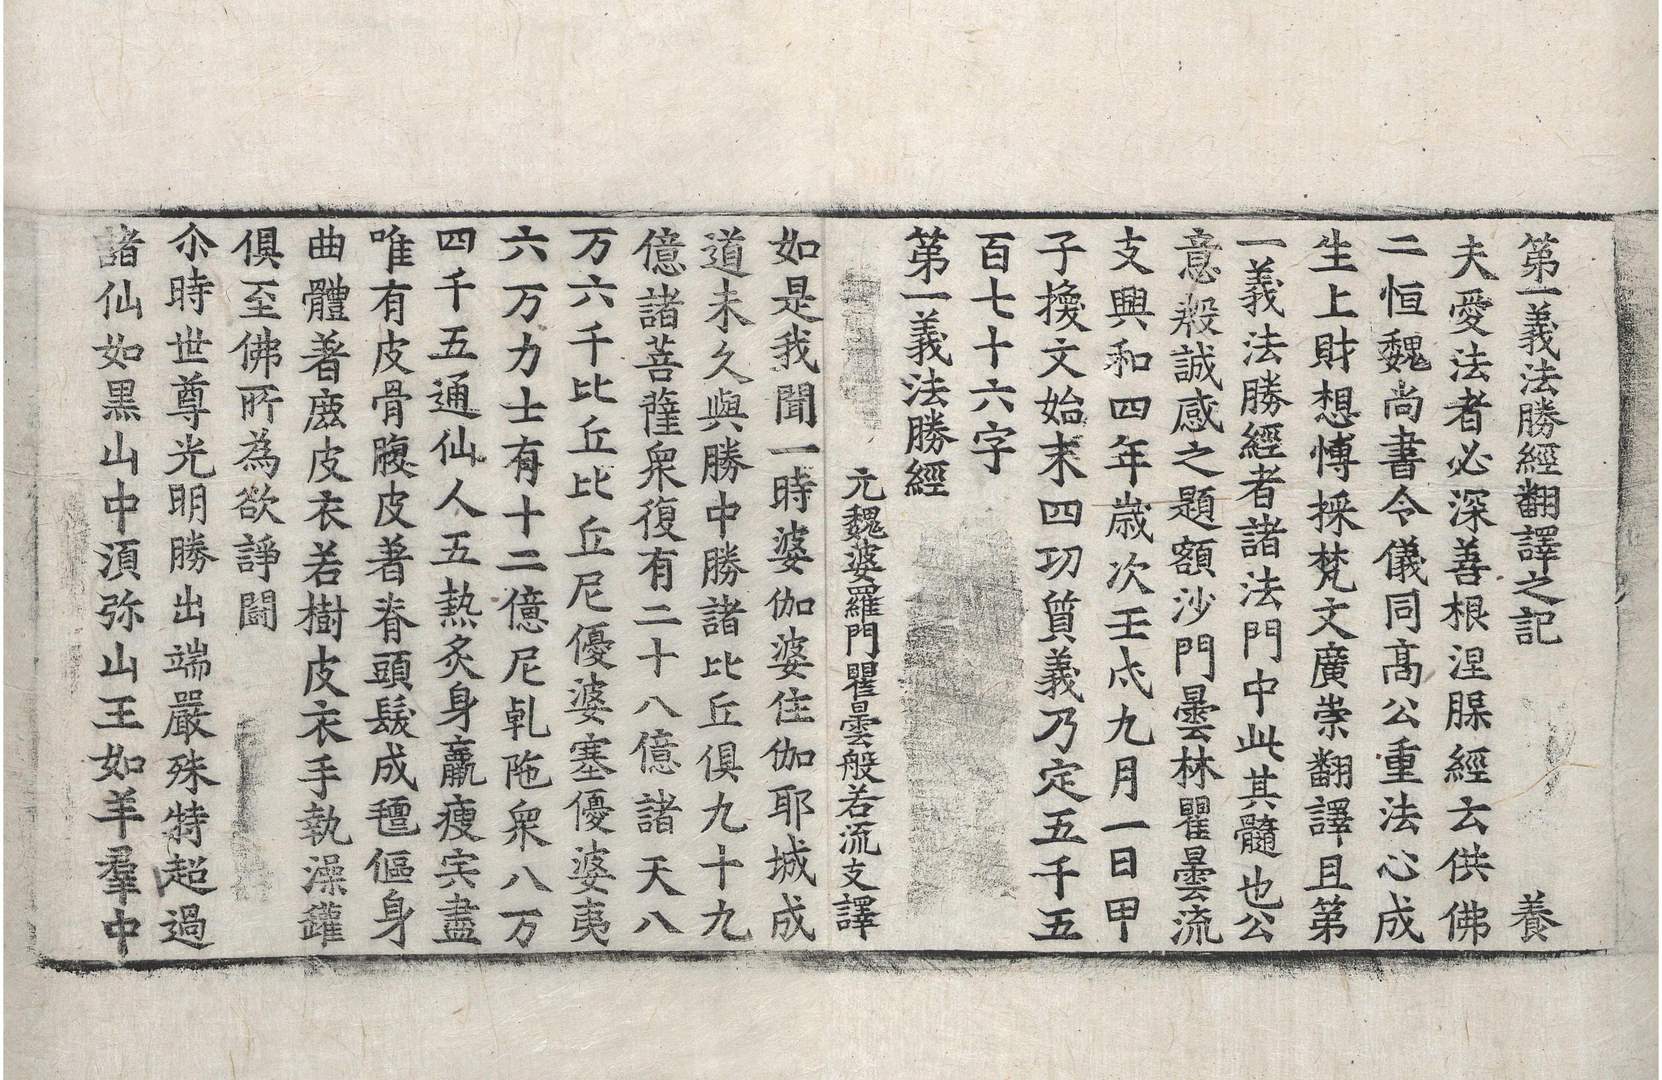 第一義法勝經翻譯之記 養
夫愛法者必深善根涅槃經云供佛
二恒魏尚書令儀同髙公重法心成
生上財想慱採梵文廣崇翻譯且第
一義法勝經者諸法門中此其髓也公
意殷誠感之題額沙門曇林瞿曇流
支興和四年歳次壬戌九月一日甲
子換文始末四功質義乃定五千五
百七十六字
第一義法勝經
元魏婆羅門瞿曇般若流支譯
如是我聞一時婆伽婆住伽耶城成
道未久與勝中勝諸比丘俱九十九
億諸菩薩衆復有二十八億諸天八
万六千比丘比丘尼優婆塞優婆夷
六万力士有十二億尼乹陁衆八万
四千五通仙人五熱炙身羸瘦宍盡
唯有皮骨腹皮著脊頭髮成氊傴身
曲體著鹿皮衣若樹皮衣手執澡鑵
俱至佛所為欲諍鬪
尒時世尊光明勝出端嚴殊特超過
諸仙如黒山中湏弥山王如羊羣中